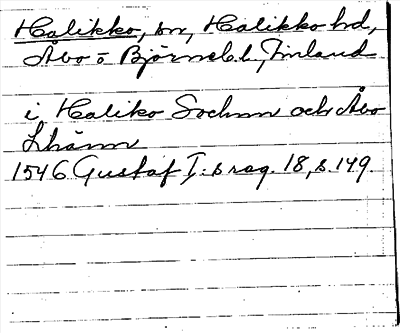 Halikko, sn, Halikko hd,
Åbo o Björneb. l., Finland
i Haliko Sochnn och Åbo
Lhänn
1546 Gustaf I:s reg. 18, s. 149.